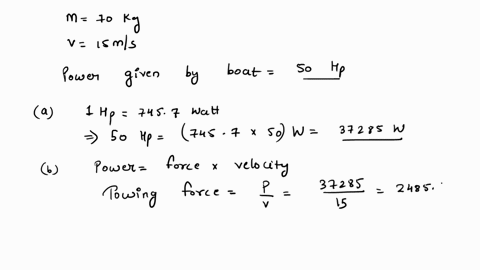 M = 70 Kg
V = 15 m/s
Power given by boat = 50 Hp
(a) 1 Hp = 745.7 Watt
⇒ 50 Hp = (745.7 x 50) W = 37285 W
(b) Power = force x velocity
Towing force = P/V = 37285/15 = 2485.